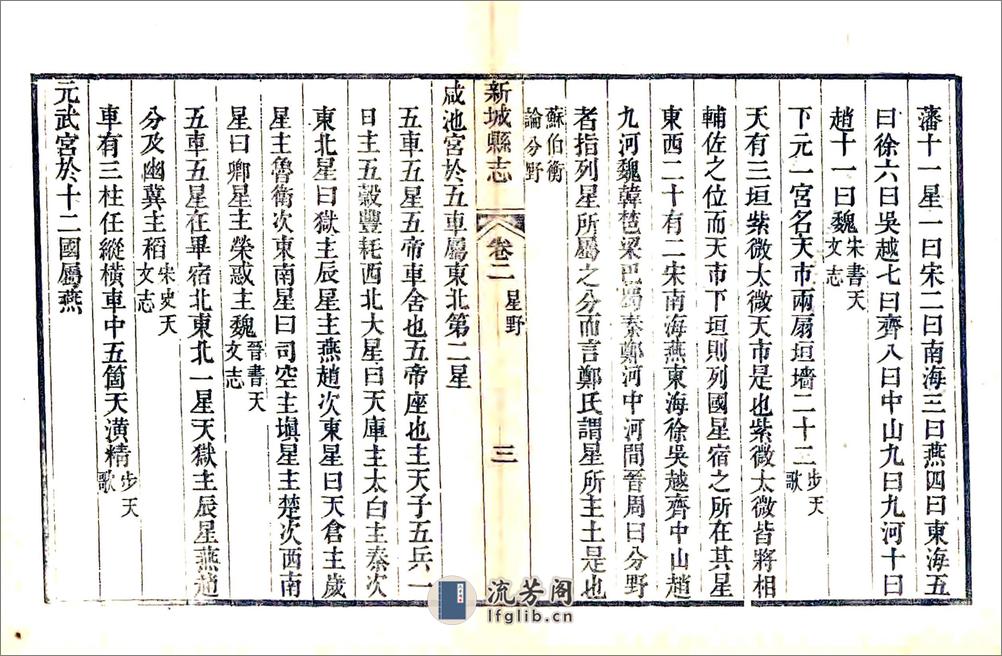 藩十一星一曰宋二曰南海三曰燕四曰東海五
曰徐六曰吳越七曰齊八曰中山九曰九河十曰
趙十一曰魏宋書天文志
下元一宮名天市兩扇垣墻二十二步天歌
天有三垣紫微太微天市是也紫微太微皆將相
輔佐之位而天市下垣則列國星宿之所在其星
東西二十有二宋南海燕東海徐吳越齊中山趙
九河魏韓楚梁巴蜀秦鄭河中河間晉周曰分野
者指列星所屬之分而言鄭氏謂星所主土是也
蘇伯衡論分野
新城縣志 卷二 星野 三
咸池宮於五車屬東北第二星
五車五星五帝車舍也五帝座也主天子五兵一
曰主五穀豐耗西北大星曰天庫主太白主秦次
東北星曰獄主辰星主燕趙次東星曰天倉主歲
星主魯衛次東南星曰司空主塡星主楚次西南
星曰卿星主熒惑主魏晉書天文志
五車五星在畢宿北東北一星天獄主辰星燕趙
分及幽冀主稻宋史天文志
車有三柱任縱橫車中五箇天潢精步天歌
元武宮於十二國屬燕
流芳阁
lfglib.cn